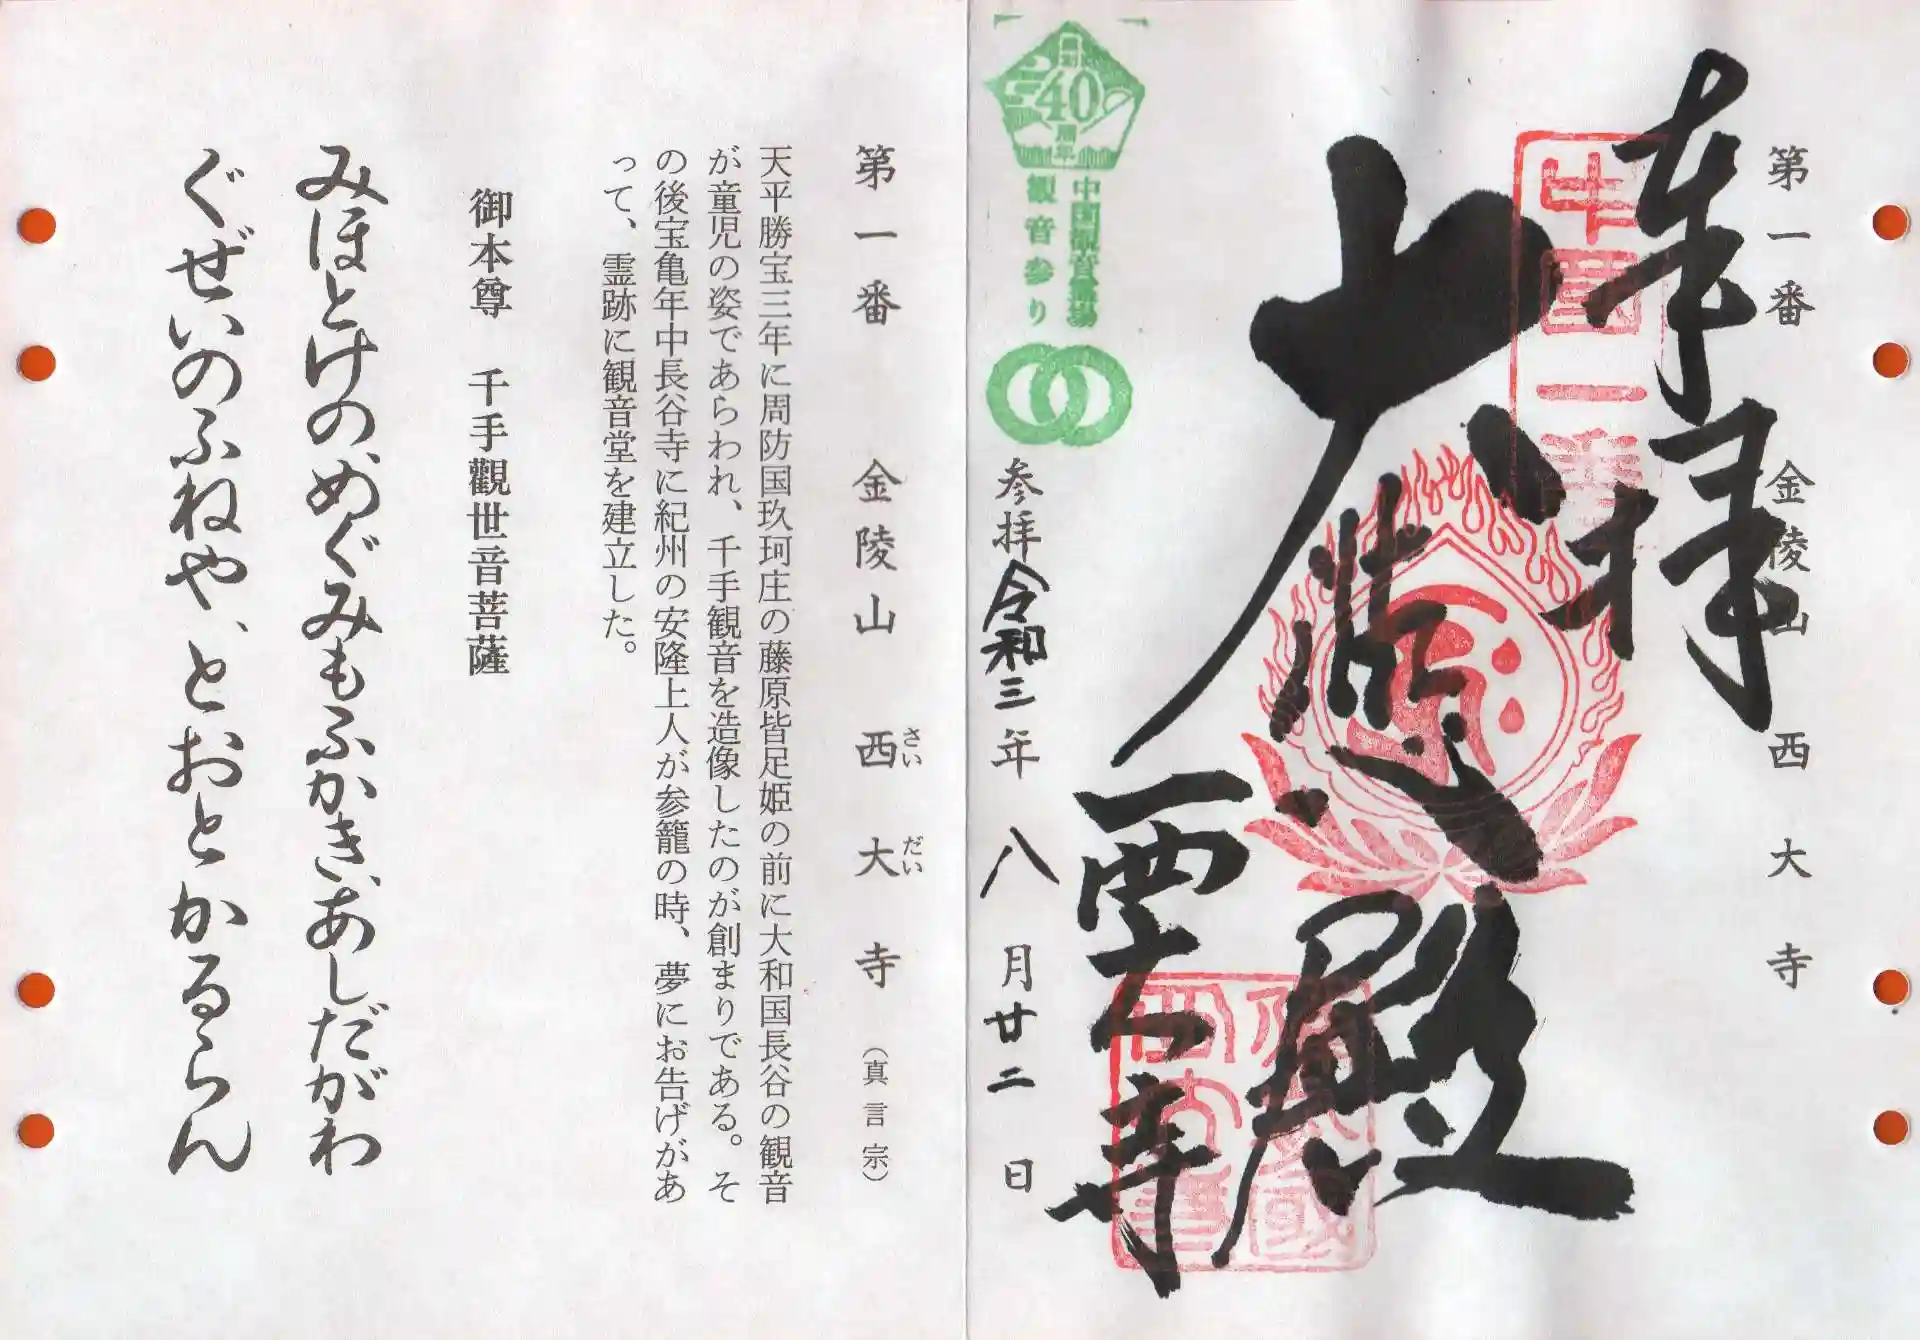 第一番 金陵山 西大寺
奉拝
中国一番
大悲殿
西大寺
創立40周年
中国観音霊場
観音参り
参拝令和三年八月廿二日
第一番 金陵山 西大寺（真言宗）
さいだい
天平勝宝三年に周防国玖珂庄の藤原皆足姫の前に大和国長谷の観音
が童児の姿であらわれ、千手観音を造像したのが創まりである。そ
の後宝亀年中長谷寺に紀州の安隆上人が参籠の時、夢にお告げがあ
って、霊跡に観音堂を建立した。
御本尊 千手觀世音菩薩
みほとけの、めぐみもふかき、あしだがわ
ぐぜいのふねや、とおとかるらん